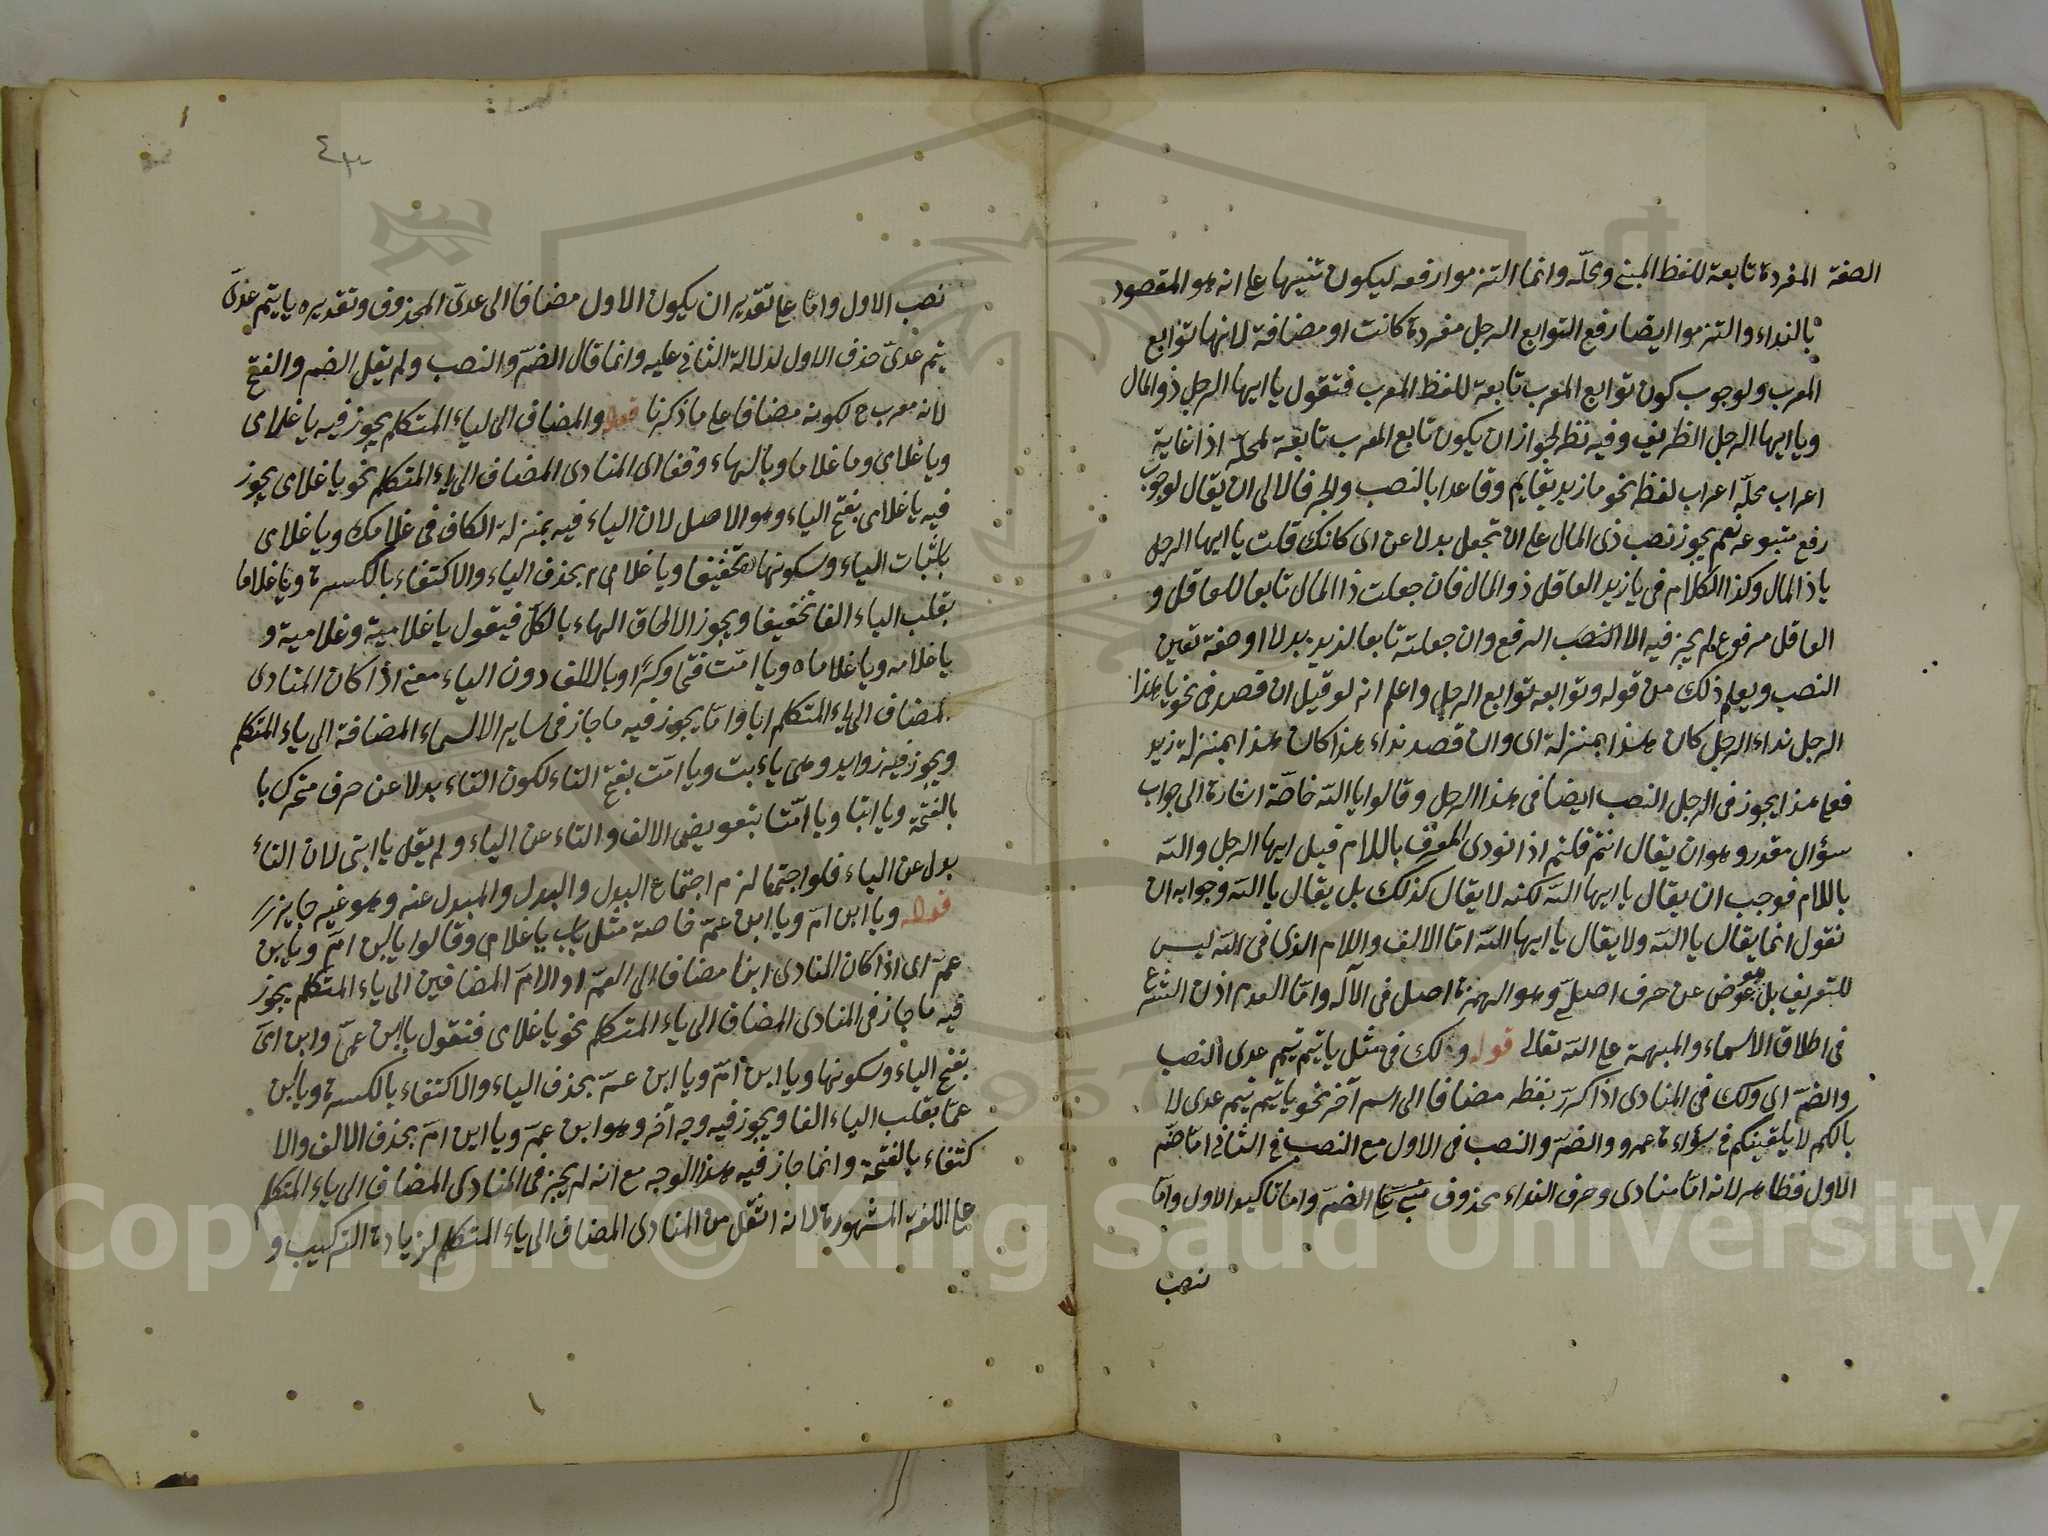 الصفة المفردة تابعة للفظ المبنى ومحلّه وانما التزموا رفعه ليكون تنبيها على انه هو المقصود
بالنداء والتزموا ايضا رفع التوابع الرجل مفردة كانت او مضافة لانها توابع
المعرب ولوجوب كون توابع المعرب تابعة للفظ المعرب فتقول يا ايها الرجل ذو المال
ويا ايها الرجل الظريف وفيه نظر لجواز ان يكون تابع المعرب تابعة لمحلّه اذا غاير
اعراب محلّه اعراب لفظه نحو ما زيد بقايم وقاعدا بالنصب والجر فالاولى ان يقال لوجوب
رفع متبوعه نعم يجوز نصب ذى المال على ان تجعل بدلا عن اى كانك قلت يا ايها الرجل
يا ذا المال وكذا الكلام فى يا زيد العاقل ذو المال فان جعلت ذا المال تابعا للعاقل و
العاقل مرفوع لم يجز فيه الا الرفع وان جعلته تابعا لزيد بدلا او صفة تعين
النصب ويعلم ذلك من قوله وتوابعه توابع الرجل واعلم انه لو قيل ان قصد فى نحو يا هذا
الرجل نداء الرجل كان هذا بمنزلة اى وان قصد نداء هذا كان هذا بمنزلة زيد
فعلى هذا يجوز فى الرجل النصب ايضا فى هذا الرجل وقالوا يا الله خاصّة اشارة الى جواب
سؤال مقدر وهو ان يقال انتم قلتم اذا نودى المعرف باللام قيل ايها الرجل والله
باللام فوجب ان يقال يا ايها الله لكنه لا يقال كذلك بل يقال يا الله وجوابه ان
نقول انما يقال يا الله ولا يقال يا ايها الله امّا الالف واللام الذى فى الله ليس
للتعريف بل عوّض عن حرف اصلىّ وهو الهمزة اصل فى الآله وامّا لعدم اذن الشرع
فى اطلاق الاسماء المبهمة على الله تعالى قوله ولك فى مثل يا تيم تيم عدى النصب
والضمّ اى ولك فى المنادى اذا كرّر بلفظه مضافا الى اسم آخر نحو يا تيم تيم عدى لا
ابالكم لا يلقينكم فى سؤاة عمرو والضمّ والنصب فى الاول مع النصب فى الثانى امّا ضمّ
الاول فظاهر لانه امّا منادى وحرف النداء محذوف بنى على الضمّ واما تاكيد الاول وامّا
نصب
نصب الاول وامّا على تقدير ان يكون الاول مضافا الى عدىّ المحذوف وتقديره يا تيم عدىّ
تيم عدىّ حذف الاول لدلالة الثانى عليه وانما قال الضمّ والنصب ولم يقل الضم والفتح
لانه معرب ح لكونه مضافا على ما ذكرنا قوله والمضاف الى ياء المتكلم يجوز فيه يا غلامى
ويا غلامى ويا غلاما وبالهاء وقفا اى المنادى المضاف الى ياء المتكلم نحو يا غلامى يجوز
فيه يا غلامى بفتح الياء وهو الاصل لان الياء فيه بمنزلة الكاف فى غلامك ويا غلامى
باثبات الياء وسكونها تخفيفا ويا غلام بحذف الياء والاكتفاء بالكسرة ويا غلاما
بقلب الياء الفا تخفيفا ويجوز الالحاق الهاء بالكلّ فيقول يا غلاميه وغلاميه و
يا غلامه ويا غلاماه ويا امّت فتحا وكسرًا وبالالف دون الياء معنى اذا كان المنادى
المضاف الى ياء المتكلم ابا وامّا يجوز فيه ما جاز فى ساير الاسماء المضافة الى ياء المتكلم
ويجوز فيه زوايد وهى يا ابت ويا امّت بفتح التاء لكون التاء بدلا عن حرف متحرك با
بالفتحة ويا ابتا ويا امّتا بتعويض الالف والتاء عن الياء ولم يقل يا ابتى لان التاء
بدل عن الياء فلو اجتمعا لزم اجتماع البدل والمبدل عنه وهو غير جايز
قوله ويا ابن امّ ويا ابن عمّ خاصة مثل باب يا غلامى وقالوا يا ابن امّ ويا بن
عمّ اى اذا كان المنادى ابنا مضافا الى العمّ او الامّ المضافين الى ياء المتكلم يجوز
فيه ما جاز فى المنادى المضاف الى ياء المتكلم نحو يا غلامى فتقول يا ابن عمىّ وابن امىّ
بفتح الياء وسكونها ويا ابن امّ ويا ابن عمّ بحذف الياء والاكتفاء بالكسرة ويا ابن
عمّا بقلب الياء الفا ويجوز فيه وجه آخر وهو ابن عمّ ويا ابن امّ بحذف الالف والا
كتفاء بالفتحة وانما جاز فيه هذا الوجه مع انه لم يجز فى المنادى المضاف الى ياء المتكلم
على اللغة المشهورة لانه اثقل من المنادى المضاف الى ياء المتكلم لزيادة التركيب و
Copyright © King Saud University